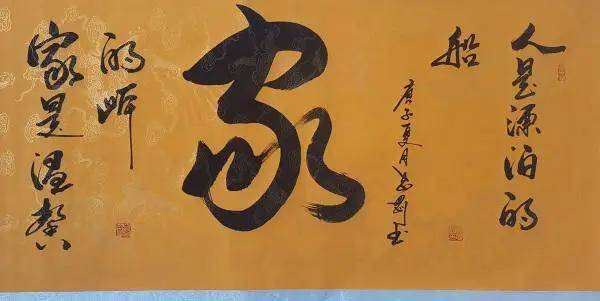 人是漂泊的
船
庚子夏月
书
家
家是温馨
的岸